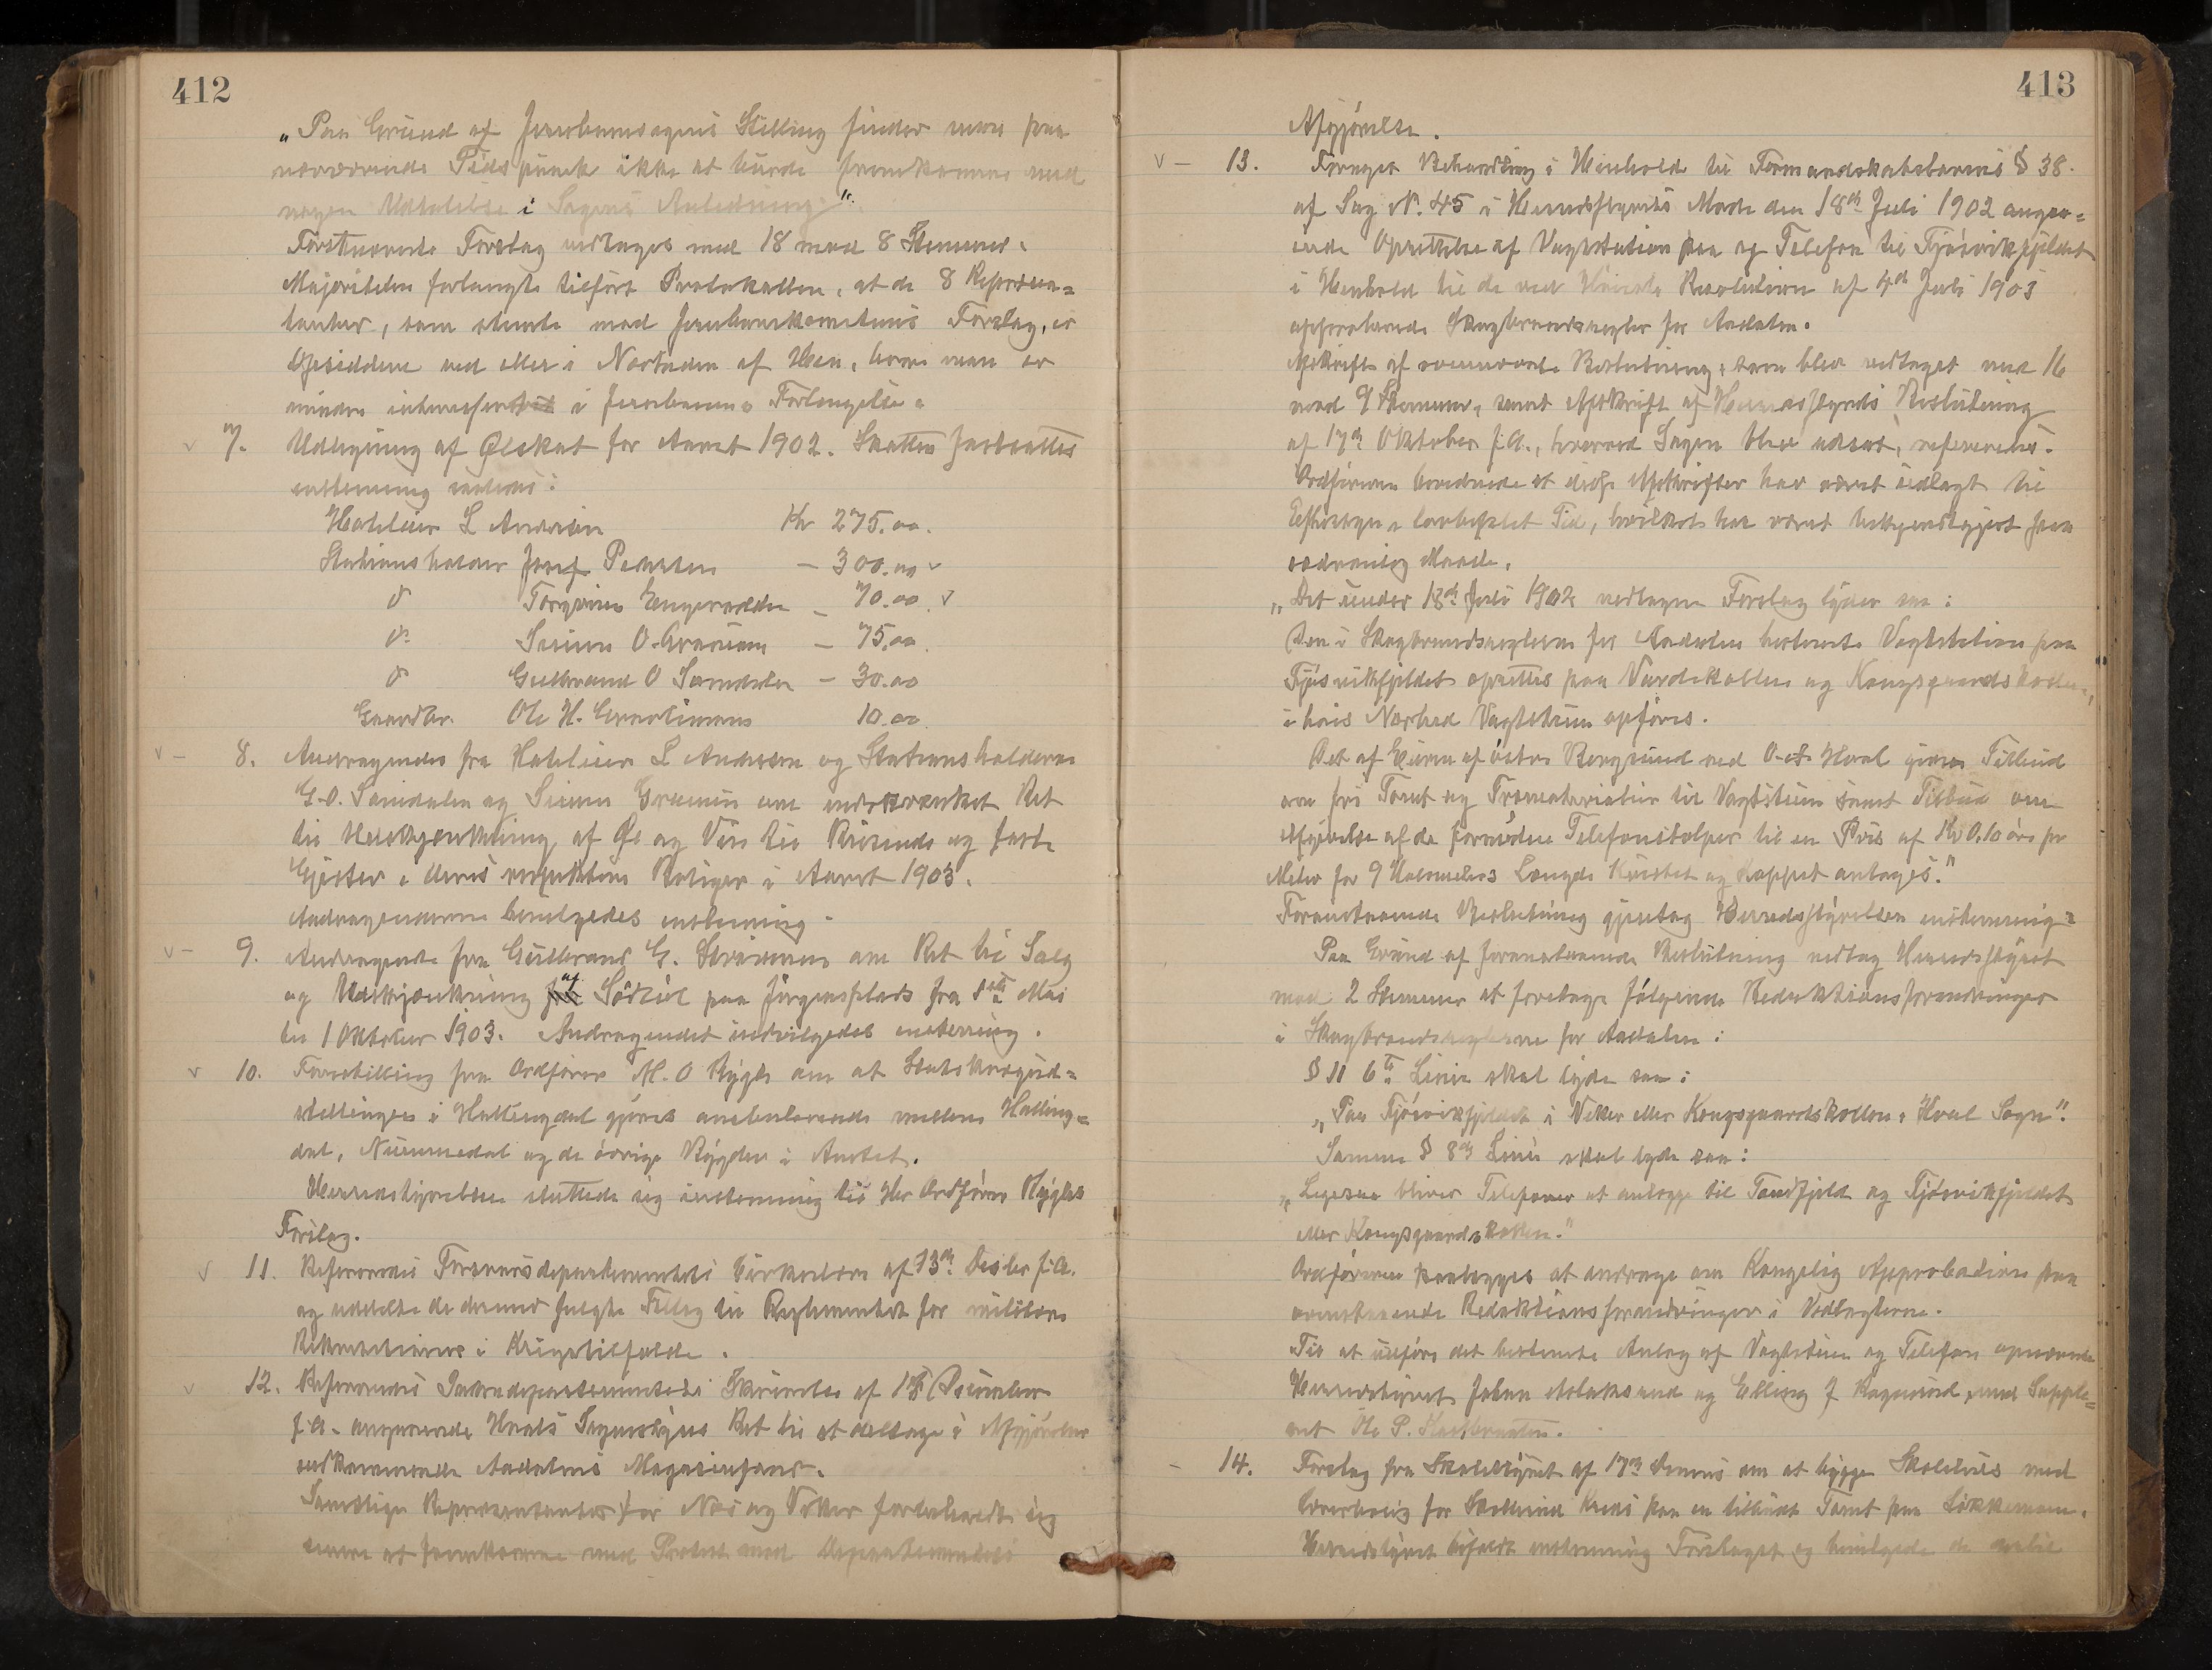 412
„Paa Grund af Jernbanesagens Stilling finder man paa
nærværende Tidspunkt ikke at burde fremkomme med
nogen Udtalelse i Sagens Anledning".
Førstnævnte Forslag vedtages med 18 mod 8 Stemmer.
Majoriteten forlangte tilført Protokollen, at de 8 Repræsen=
tanter, som stemte mod Jernbanekomiteens Forslag, er
Opsiddere ved eller i Nærheden af Hen, hvor man er
mindre interesseret i Jernbanens Forlængelse.
7. Udligning af Ølskat for Aaret 1902. Skatten fastsattes
enstemmig saaledes:
Hotelier L Andersen Kr 275.00.
Stationsholder Josef Pedersen – 300.00
d Torgrim Engeraadden – 70.00
d. Simen O. – 75.00
d Gulbrand O Sørndalen – 30.00
Gaardbr. Ole H. 10.00
8. Andragender fra Hotelier L Andersen og Stationsholderne
G. O. Sørndalen og Simen om indskrænket Ret
til Udskjænkning af Øl og Vin til Reisende og faste
Gjæster i deres respektive Boliger i Aaret 1903.
Andragenderne bevilgedes enstemmig.
9. Andragende fra Gulbrand G. om Ret til Salg
og Udskjænkning af paa Jørgensplads fra 1ste Mai
til 1 Oktober 1903. Andragendet indvilgedes enstemmig.
10. Forestilling fra Ordfører M. O Rygh om at
stillinger i Hallingdal gjøres mellem Halling=
dal, Nummedal og de øvrige Bygder i Amtet.
Herredsstyrelsen sluttede sig enstemmig til Hr Ordfører Ryghs
Forslag.
11. Refereredes Forsvarsdepartementets Cirkulære af 13de Desbr f.A.
og uddelte de dermed fulgte Tillæg til Reglementet for militære
Rekvisitioner i Krigstilfælde.
12. Refereredes Indredepartementets Skrivelse af December
f.A. angaaende Hvals Sognestyres Ret til at deltage i Afgjørelser
vedkommende Aadalens Magasinfond.
Samtlige Repræsentanter for Næs og Viker forbeholdt sig
senere at fremkomme med Protest mod Departementets
413
Afgjørelse.
13. Foretoges Behandling i Henhold til Formandskabslovens § 38.
af Sag N. 45 i Herredsstyrets Møde den 18de Juli 1902 angaa=
ende Oprettelse af Vagtstation paa og Telefon til Tjøsvikfjeldet
i Henhold til de ved Resolution af 4de Juli 1903
approberede Skogbrandsregler for Aadalen.
Afskrift af ovennævnte Beslutning, som blev vedtaget med 16
mod 9 Stemmer, samt Afskrift af Herredsstyrets Beslutning
af 17de Oktober f.A., hvorved Sagen blev udsat, refereredes.
Ordføreren bevidnede at disse Afskrifter har været udlagt til
Eftersyn i lovbefalet Tid, hvilket har været bekjendtgjort paa
sædvanlig Maade.
„Det under 18de Juli 1902 vedtagne Forslag lyder saa:
Den i Skogbrandsreglerne for Aadalen bestemte Vagtstation paa
Tjøsvikfjeldet oprettes paa Vardekollen og Kongsgaardskollen,
i hvis Nærhed Vagtstuen opføres.
Det af Eieren af østre Bergsund ved O. Hval givne Tilbud
om fri Tomt og Træmaterialier til Vagtstuen samt Tilbud om
Afgivelse af de fornødne Telefonstolper til en Pris af Kr 0.10 øre pr
Meter for 9 Længde Kvistet og kappet antages."
Foranstaaende Beslutning gjentog Herredsstyrelsen enstemmig=
Paa Grund af foranstaaende Beslutning vedtog Herredsstyret
mod 2 Stemmer at foretage følgende Redaktionsforandringer
i Skogbrandsreglerne for Aadalen:
§ 11 6te Linie skal lyde saa:
„Paa Tjøsvikfjeldet i Viker eller Kongsgaardskollen i Hval Sogn".
Samme § 8de Linie skal lyde saa:
„Ligesaa bliver Telefoner at anlægge til Tandfjeld og Tjøsvikfjeldet
eller Kongsgaardskollen."
Ordføreren paalægges at andrage om Kongelig Approbation paa
ovenstaaende Redaktionsforandringer i Vedtægterne.
Til at udføre det bestemte Anlæg af Vagtstuen og Telefon opnævnte
Herredsstyret Johan og Elling J. med Supple=
ant Ole P.
14. Forslag fra Skolestyret af 17de om at bygge Skolehus med
Lærerbolig for Kreds paa en tilbudt Tomt paa
Herredsstyret bifaldt enstemmig Forslaget og bevilgede de dertil